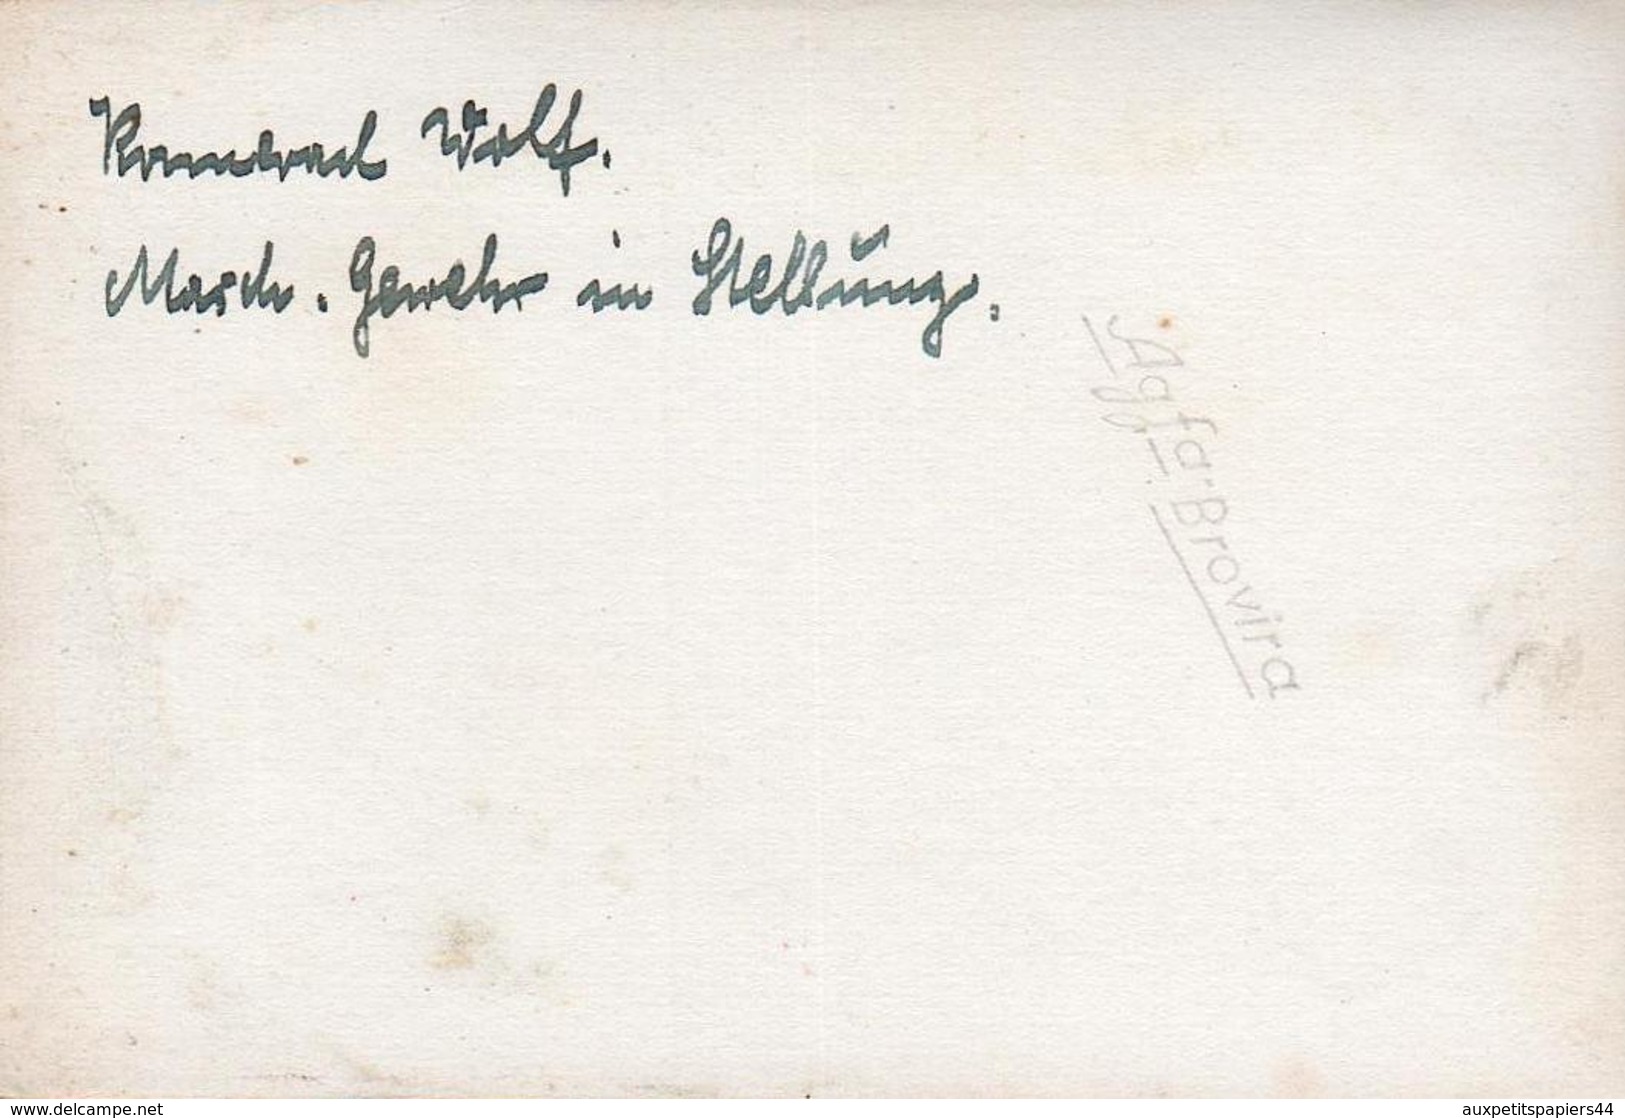 Kamerad Wolf.
Masch. Gewehr in Stellung.
Agfa-Brovira
www.delcampe.net
auxpetitspapiers44